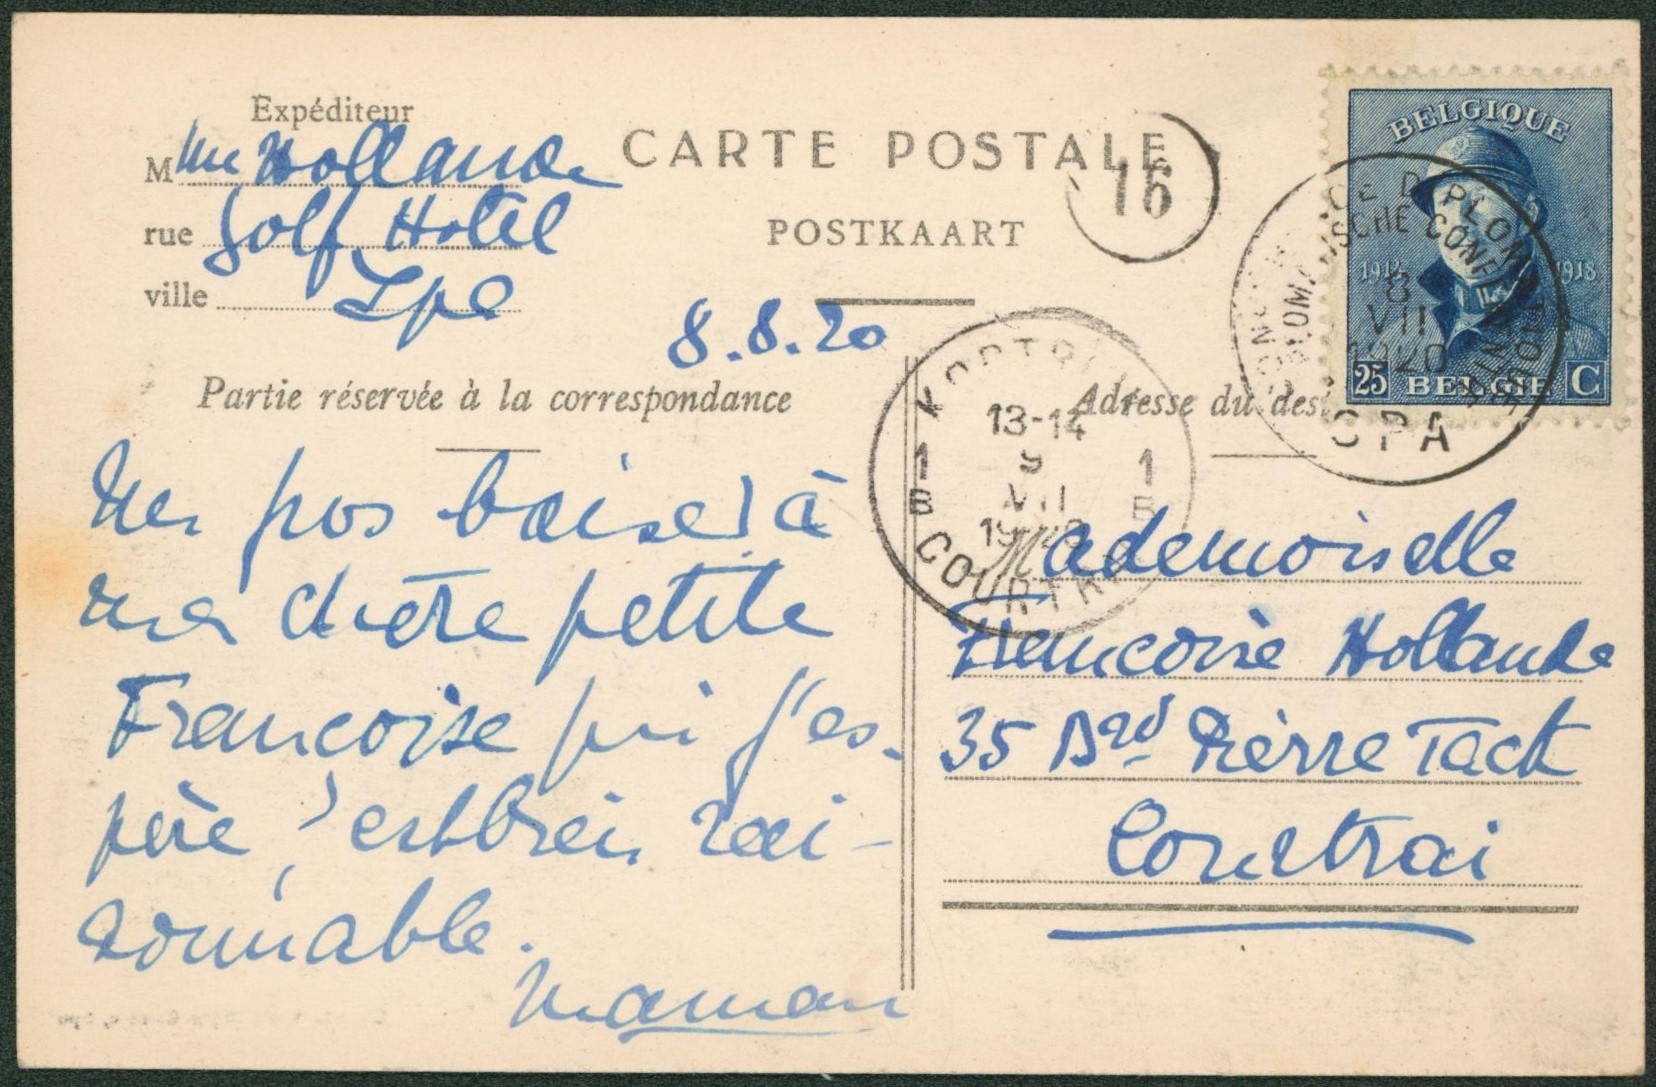 Expéditeur
M me Hollande
rue Golf Hotel
ville Spa
CARTE POSTALE
POSTKAART
16
8.8.20
BELGIQUE
1914 1918
25 BELGIË C
8
VII
1920
SPA
Partie réservée à la correspondance
Adresse du des
KORTRIJK
13-14
1 9 1
B VII B
1920
COURTRAI
Un gros baiser à
ma chère petite
Françoise qui j'es-
père, est bien rai-
sonnable.
Maman
Mademoiselle
Françoise Hollande
35 Bard Pierre Tack
Courtrai